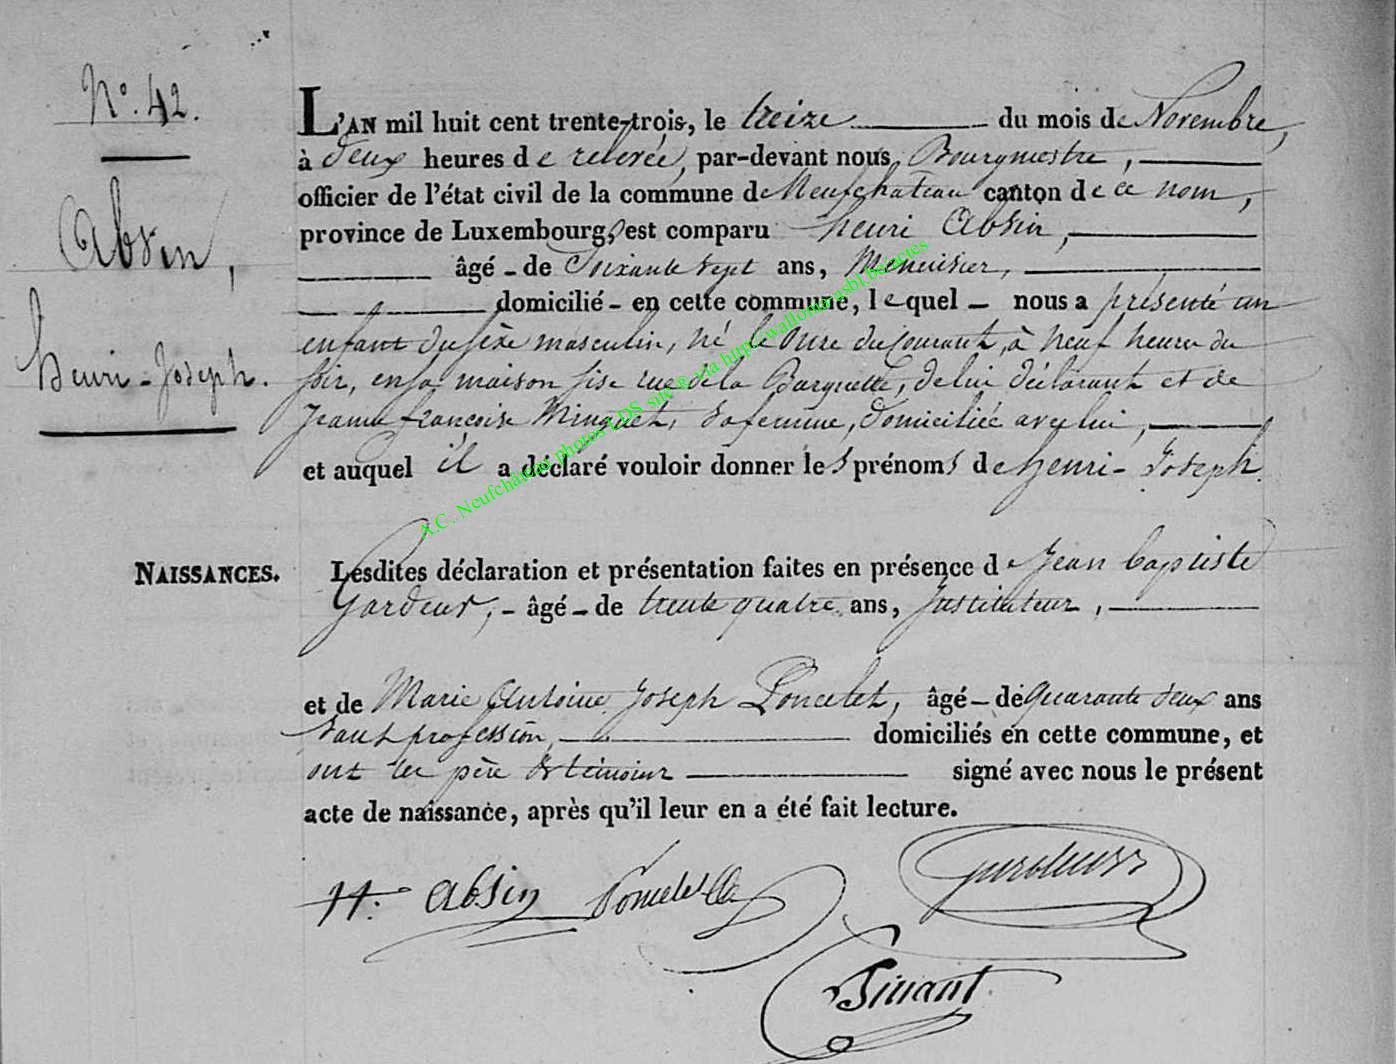 N.° 42.
Absin,
Henri-Joseph.
NAISSANCES.
L'AN mil huit cent trente-trois, le treize du mois de Novembre,
à deux heures de relevée, par-devant nous Bourgmestre,
officier de l'état civil de la commune de Neufchateau canton de ce nom,
province de Luxembourg, est comparu henri Absin,
âgé - de Soixante sept ans, Menuisier,
domicilié - en cette commune, lequel - nous a présenté un
enfant du sexe masculin, né le onze du courant, à neuf heures du
soir, en sa maison sise rue de la Barquette, de lui déclarant et de
Jeanne françoise Minguet, sa femme, domiciliée avec lui,
et auquel il a déclaré vouloir donner les prénoms de henri-Joseph.
Lesdites déclaration et présentation faites en présence de Jean baptiste
Gordeur, - âgé - de trente quatre ans, Instituteur,
et de Marie Antoine Joseph Poncelet, âgé - de quarante deux ans
Sans profession, domiciliés en cette commune, et
ont les père et témoins signé avec nous le présent
acte de naissance, après qu'il leur en a été fait lecture.
H. Absin Poncelet
A.C. Neufchâteau photos LDS site @ via http://wallonia.asbl.be/actes